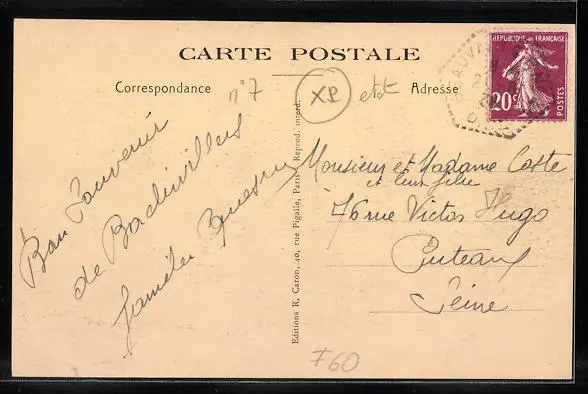 CARTE POSTALE
Correspondance
Adresse
n° 7
XP
etot
RÉPUBLIQUE FRANÇAISE
20c
POSTES
Bon Souvenir
de Bachivillers
famille
Monsieur et Madame Coste
et leur fille
76 rue Victor Hugo
Puteaux
Seine
Editions R. Caron, 40, rue Pigalle, Paris. Reprod. interd.
F60